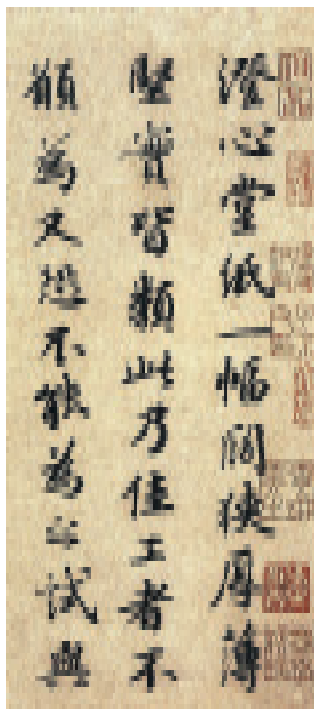 澄心堂紙一幅闊狹厚薄
堅實皆類此乃佳工者不
願為又恐不能為之試與